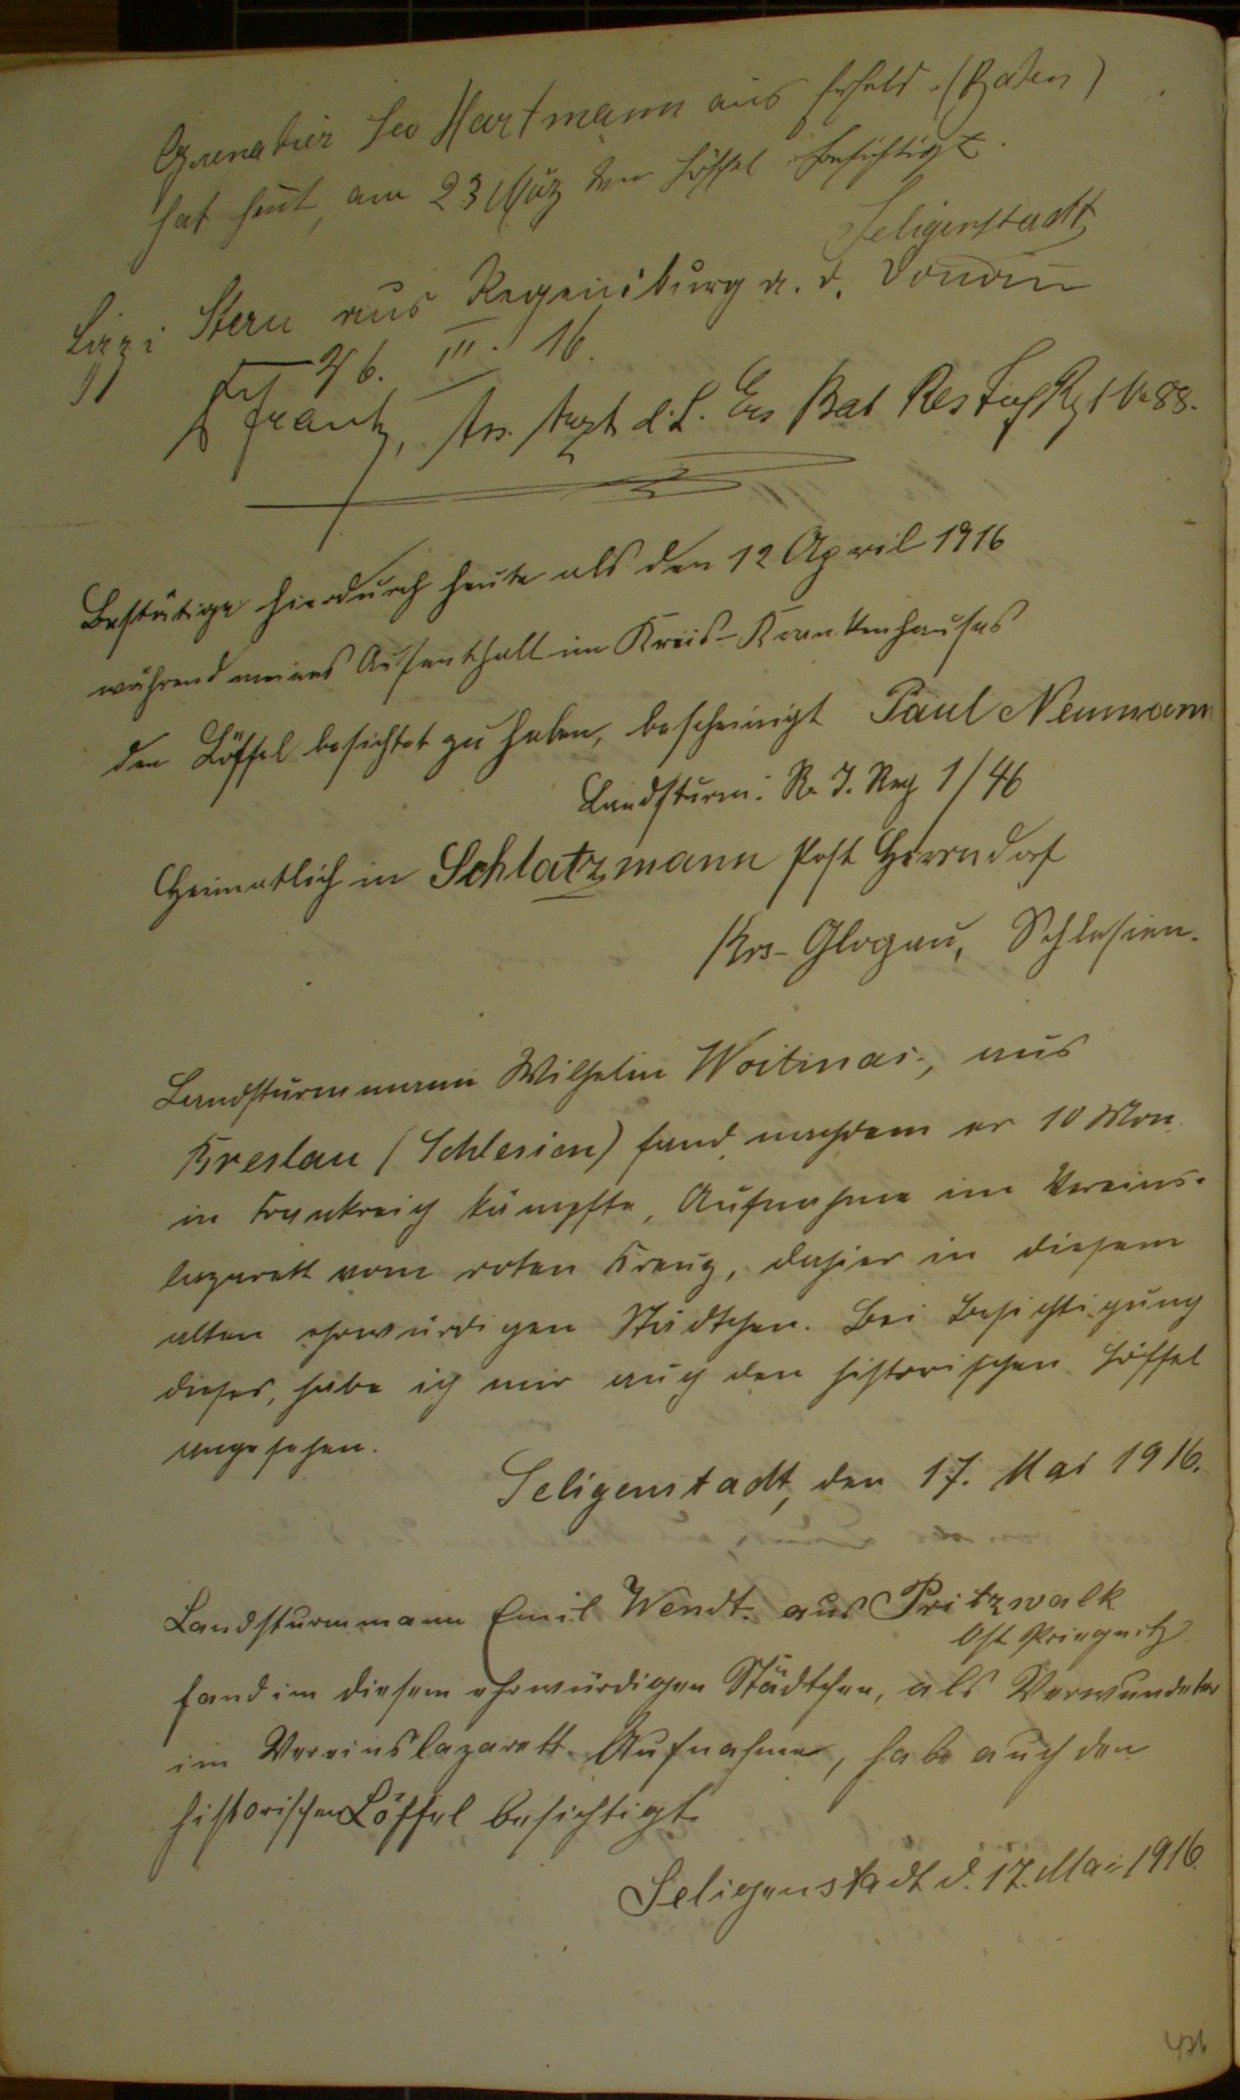 Grenadier Leo Hartmann aus Erfeld. (Baden)
hat heut, am 23 März den Löffel besichtigt.
Seligenstadt
Lizzi Stern aus Regensburg a. d. Donau
26. III. 16.
Frantz, Ass. Arzt d. L. Ers Bat Res Inf Rgt No 88.
Bestätige hierdurch heute als den 12 April 1916
während meines Aufenthalt im Kreis-Krankenhauses
den Löffel besichtet zu haben, bescheinigt Paul Neumann
Landsturm: R. I. Reg 1/46
Heimatlich in Schlatzmann Post Herrndorf
Krs- Glogau, Schlesien.
Landsturmmann Wilhelm Woitinas, aus
Breslau (Schlesien) fand, nachdem er 10 Mon.
in Frankreich kämpfte, Aufnahme im Vereins-
lazarett vom roten Kreuz, dahier in diesem
alten ehrwürdigen Städtchen. Bei Besichtigung
dieses, habe ich mir auch den historischen Löffel
angesehen.
Seligenstadt, den 17. Mai 1916.
Landsturmmann Emil Wendt. aus Pritzwalk
Ost Priegnitz
fand in diesem ehrwürdigen Städtchen, als Verwundeter
im Vereinslazarett Aufnahme, habe auch den
historischen Löffel besichtigt.
Seligenstadt d. 17. Mai 1916.